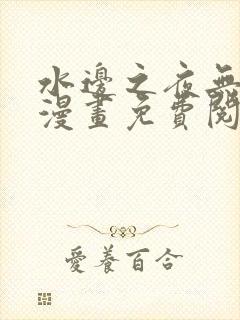 水邊之夜無
漫畫免費閱
愛養百合